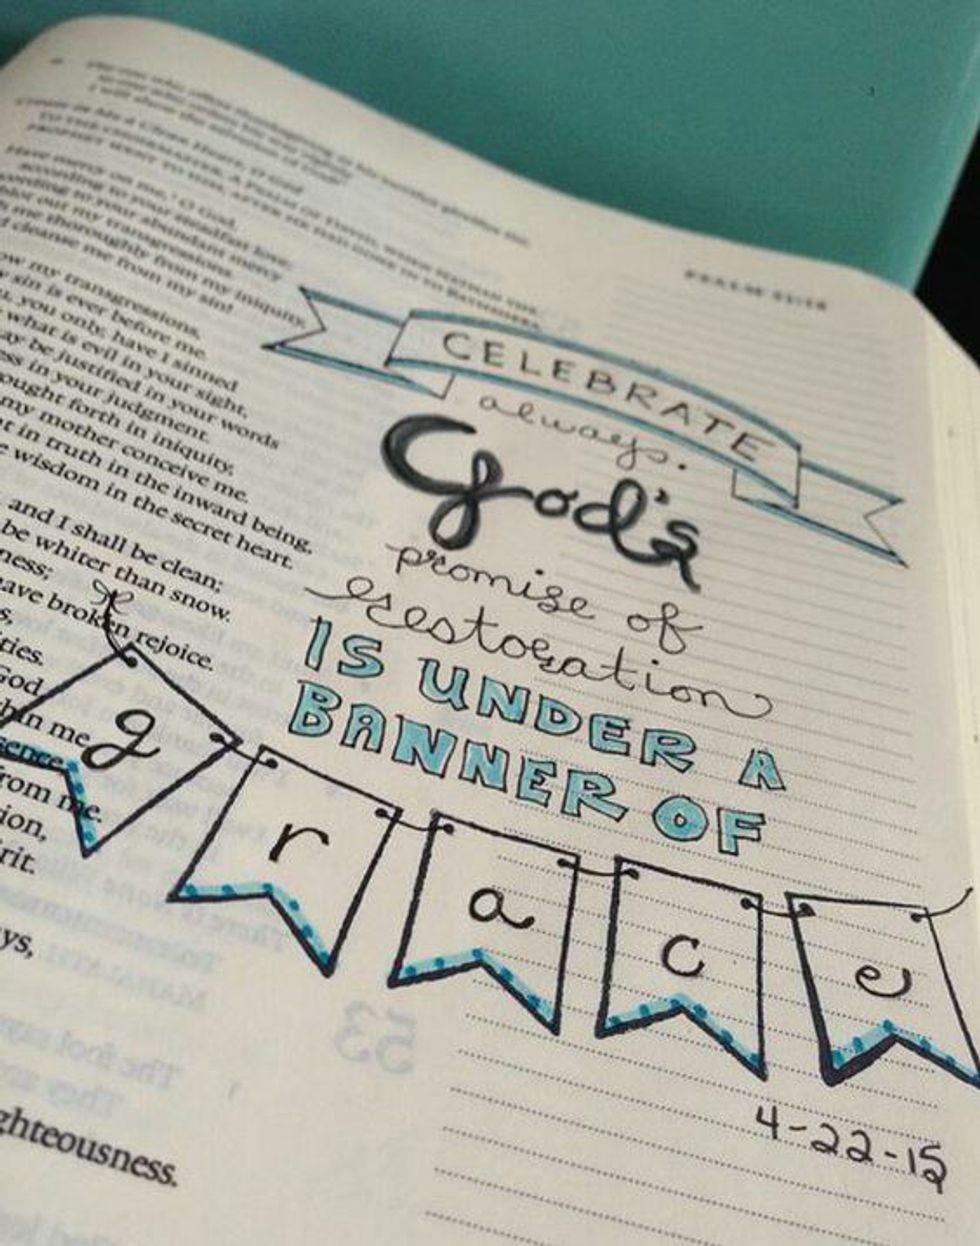 PSALM 51:18
Have mercy on me, O God,
according to your steadfast love;
according to your abundant mercy
blot out my transgressions.
me thoroughly from my iniquity,
cleanse me from my sin!
ow my transgressions,
sin is ever before me.
you, you only, have I sinned
what is evil in your sight,
ay be justified in your words
ess in your judgment.
ought forth in iniquity,
my mother conceive me.
t in truth in the inward being,
e wisdom in the secret heart.
and I shall be clean;
be whiter than snow.
ness;
ave broken rejoice.
s,
ties.
God,
hin me.
sence,
from me.
ion,
rit.
ys,
ghteousness.
CELEBRATE
always.
God's
promise of
restoration
IS UNDER A
BANNER OF
g r a c e
4-22-15